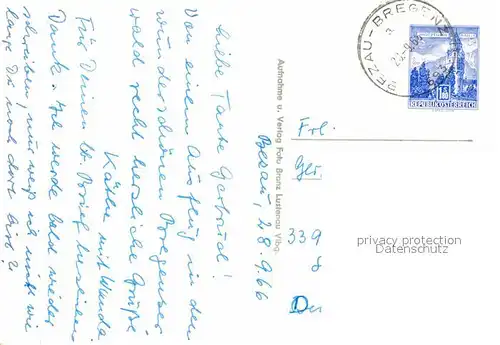 Bezau, 48.9.66
Liebe Tante Gertrud!
Von einem Ausflug in den
wunderschönen Bregenzer
wald recht herzliche Grüße
Käthe mit Wanda
Für Deinen lb. Brief herzlichen
Dank. Ich werde bald wieder
schreiben, nur weiß ich nicht wie
lange Du noch dort bist?
Aufnahme u. Verlag Foto Branz Lustenau Vlbg.
BEZAU-BREGENZ
REPUBLIK ÖSTERREICH
Frl.
Ger
339
privacy protection
www.ansichtskarten-center.de